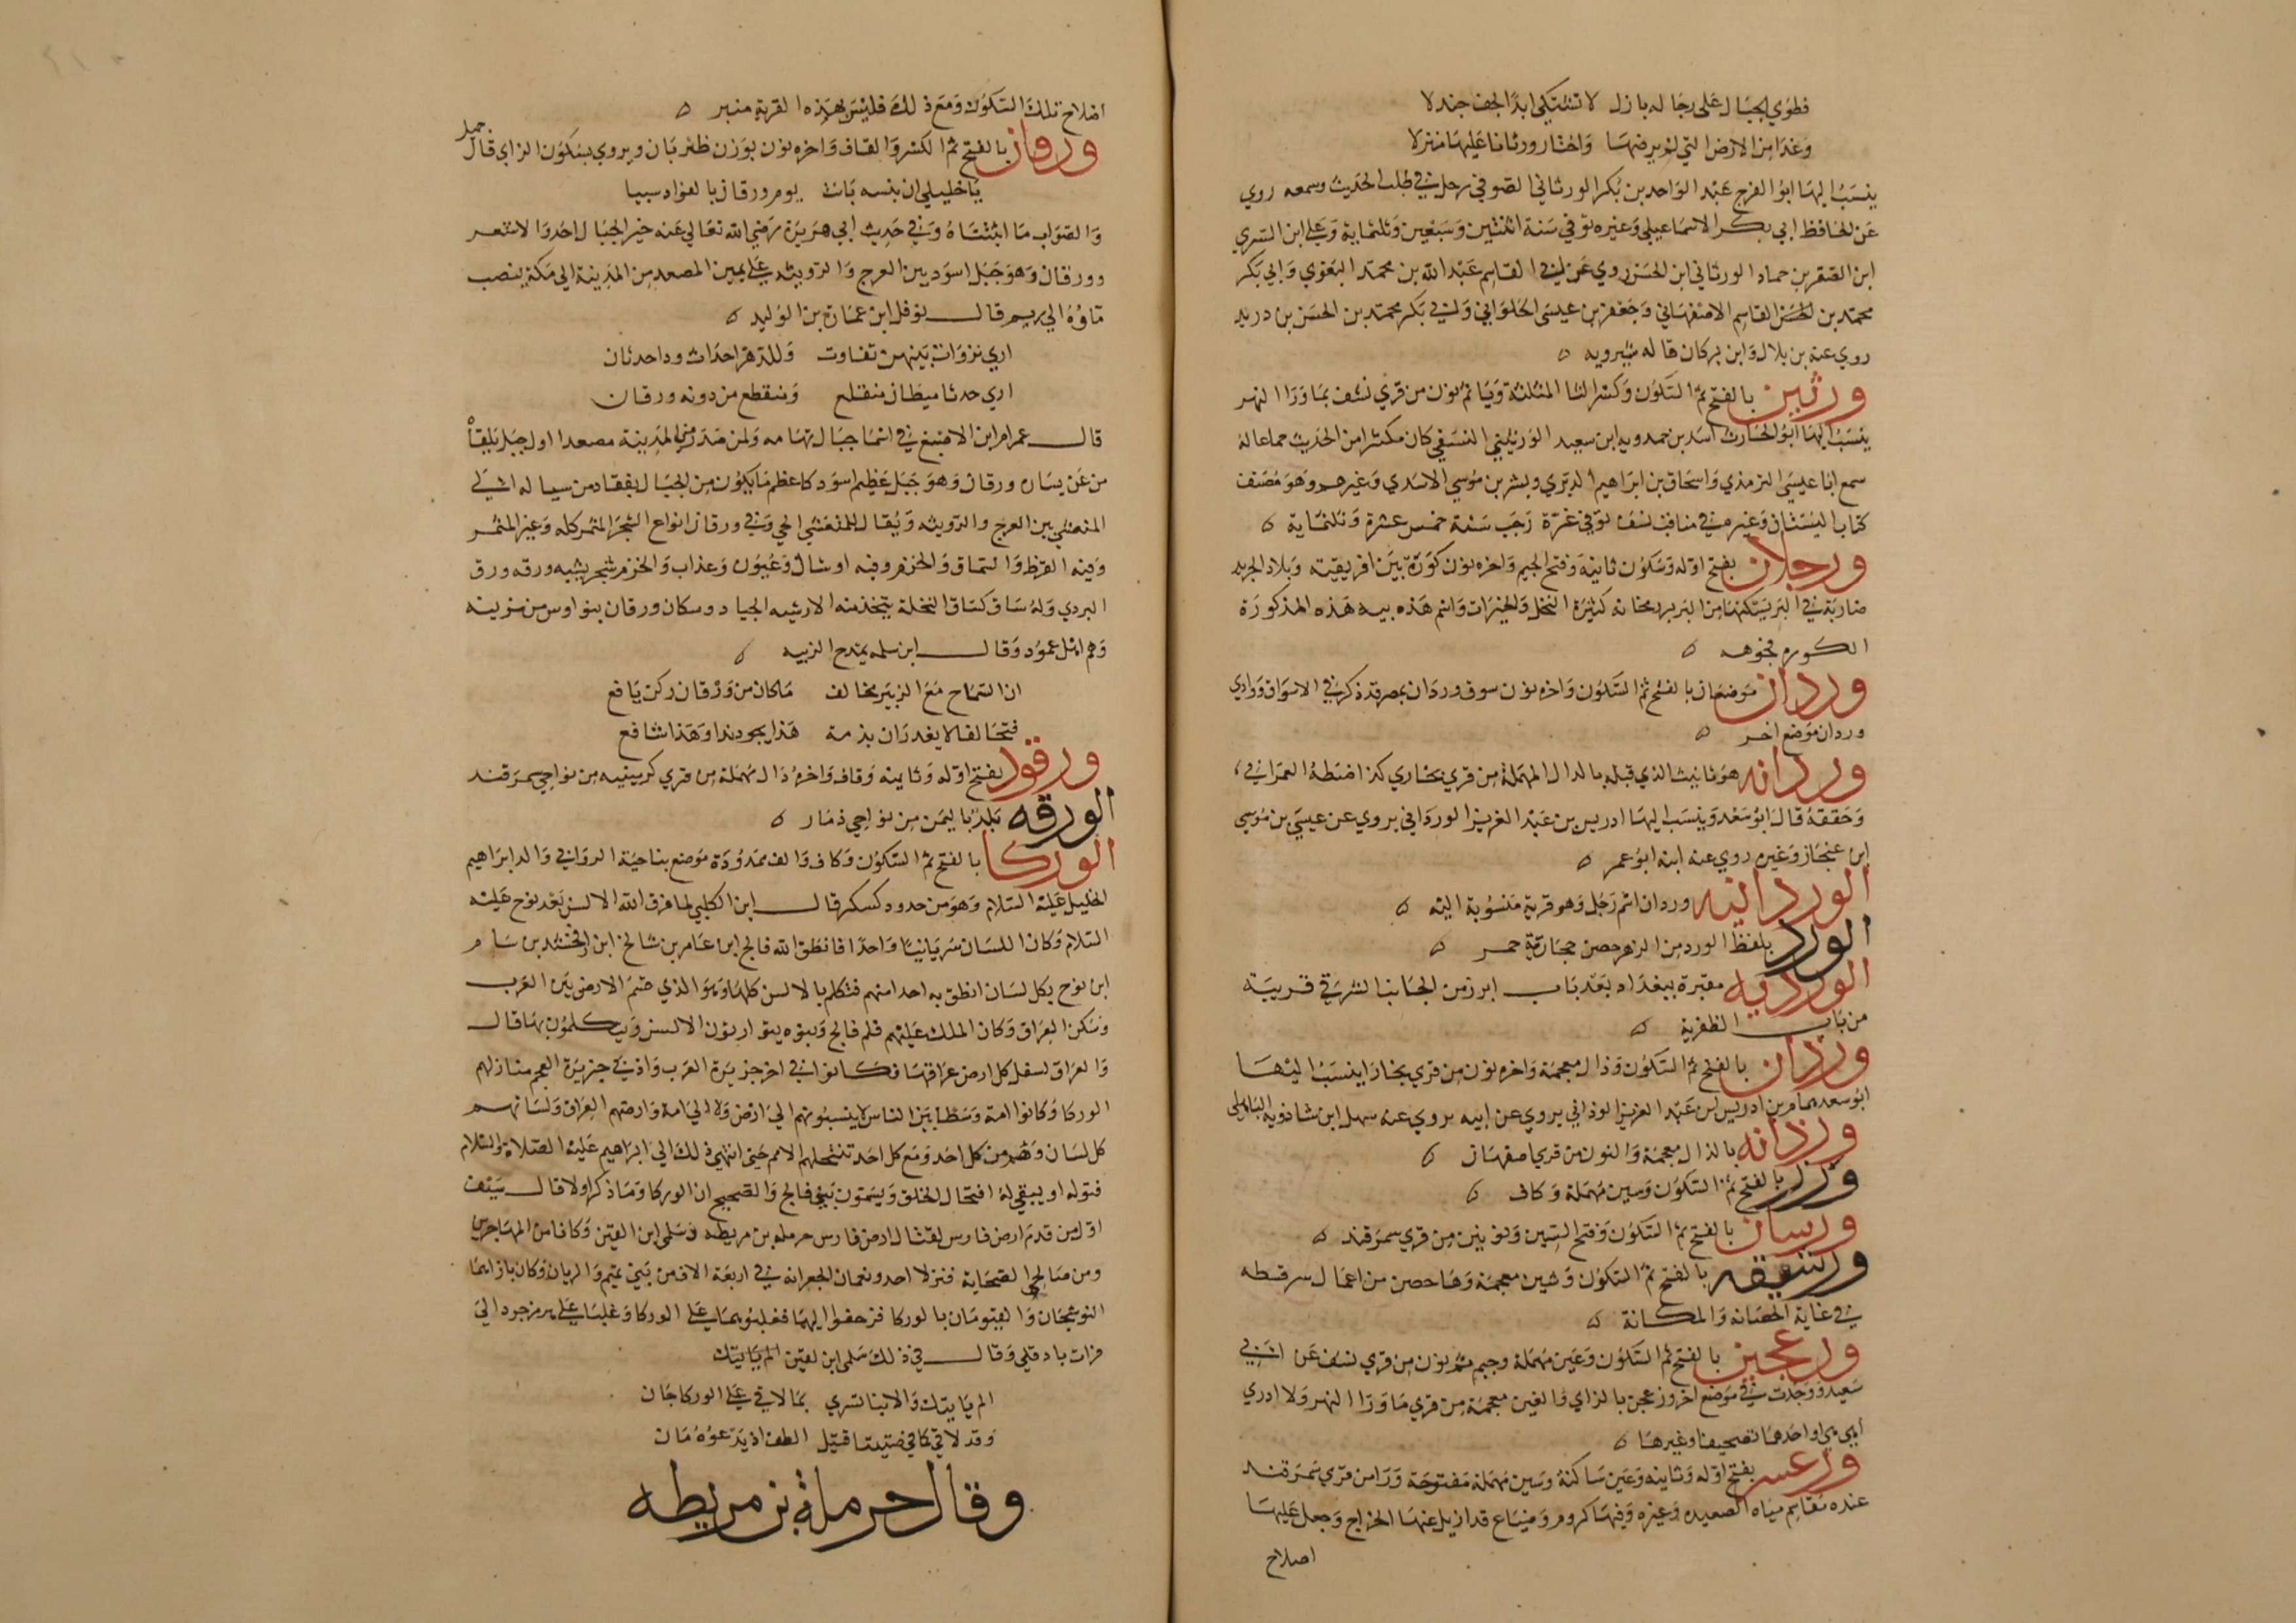 فطوي الجبال على رجاله بازل لا تشتكي ابدا لخف جندلا
وغدا من الارض التي لم يرضها واختار ورثانا عليها منزلا
ينسب اليها ابو الفرج عبد الواحد بن بكر الورثاني الصوفي رحل في طلب الحديث وسمعه روي
عن الحافظ ابي بكر الاسماعيلي وغيره توفي سنة اثنتين وسبعين وثلثماية وعلي ابن السري
ابن الصقر بن حماد الورثاني ابن الحسن روي عن ابي القاسم عبد الله بن محمد البغوي وابي بكر
محمد بن الحسن القاسم الاصفهاني وجعفر بن عيسى الحلواني وابي بكر محمد بن الحسن بن دريد
روي عنه بن بلال وابن بركان قاله شيرويه
ورثين بالفتح ثم السكون وكسر الثا المثلثة ويا ثم نون من قري نسف بما ورا النهر
ينسب اليها ابو الحارث اسد بن حمدويه ابن سعيد الورثيني النسفي كان مكثرا من الحديث جماعا له
سمع ابا عيسى الترمذي واسحاق بن ابراهيم الدبري وبشر بن موسى الاسدي وغيرهم وهو مصنف
كتاب البستان وغيره في مناقب نسف توفي غرة رجب سنة خمس عشرة وثلثماية
ورجلان بفتح اوله وسكون ثانيه وفتح الجيم واخره نون كورة بين افريقية وبلاد الجريد
ضاربة في البر يسكنها من البربر مجانه كثيرة النخل والخيرات واسم هذه بيه هذه المذكورة
الكوره فجوهه
وردان موضعان بالفتح ثم السكون واخره نون سوق وردان بمصر قد ذكر في الاسواق ووادي
وردان موضع اخر
وردانه هو تانيث الذي قبله بالدال المهملة من قري بخاري كذا ضبطه العمراني
وحققه قال ابو سعد وينسب اليها ادريس بن عبد العزيز الورداني يروي عن عيسى بن موسى
ابن غنجار وغيره روي عنه ابنه ابو عمر
الوردانيه وردان اسم رجل وهو قرية منسوبة اليه
الورد بلفظ الورد من الزهر حصن حجارته حمر
الورديه مقبرة ببغداد بعد باب ابرز من الجانب الشرقي قريبة
من باب الظفرية
ورذان بالفتح ثم السكون وذال معجمة واخره نون من قري بخارا ينسب اليها
ابو سعد همام بن ادريس بن عبد العزيز الوذاني يروي عن ابيه يروي عنه سهل ابن شاذويه الباهلي
ورذانه بالذال معجمة والنون من قري اصفهان
ورزر بالفتح ثم السكون وسين مهملة وكاف
ورسان بالفتح ثم السكون وفتح السين ونونين من قري سمرقند
ورشيقه بالفتح ثم السكون وشين معجمة وها حصن من اعمال سرقسطه
في غاية الحصانه والمكانة
ورعجن بالفتح ثم السكون وعين مهملة وجيم ثم نون من قري نسف عن ابي
سعيد ووجدت في موضع اخر وزغجن بالزاي والغين معجمة من قري ما ورا النهر ولا ادري
اهي هي او احدهما تصحيف او غيرها
ورعسر بفتح اوله وثانيه وعين ساكنة وسين مهملة مفتوحة ورا من قري سمرقند
عنده مقاسم مياه الصعيد وغيره وفيها كروم وضياع قد ازيل عنها الخراج وجعل عليها
اصلاح
اصلاح تلك السكون ومع ذلك فليس بهذه القرية منبر
ورقان بالفتح ثم الكسر والقاف واخره نون بوزن ظربان ويروي بسكون الراي قال جميل
يا خليلي ان بثينه بانت يوم ورقان بالفواد سبيا
والصواب ما اثبتناه وفي حديث ابي هريرة رضي الله تعالي عنه خير الجبال احد والاشعر
وورقان وهو جبل اسود بين العرج والرويثه على يمين المصعد من المدينة الي مكة ينصب
ماوه الي ريم قال نوفل ابن عمارة بن الوليد
اري نزوات بينهن تفاوت وللدهر احداث وذا حدثان
اري حدثا ميطان منقلع ومنقطع من دونه ورقان
قال عمرام ابن الاصبغ في اسما جبال تهامه ولمن صدر من المدينة مصعدا اول جبل يلقاه
من عن يساره ورقان وهو جبل عظيم اسود كاعظم ما يكون من الجبال ينقاد من سياله الي
المتعشي بين العرج والرويثه ويقال للمتعشي الجي وفي ورقان انواع الشجر المثمر كله وغير المثمر
وفيه القرظ والسماق والخزم وفيه اوشال وعيون وعذاب والخزم شجر يشبه ورقه ورق
البردي وله ساق كساق النخلة يتخذ منه الارشيه الجياد وسكان ورقان بنو اوس من مزينه
وهم اهل عمود وقال ابن سلمه يمدح الزبيه
ان السماح مع الزبير مخالف ماكان من ورقان ركن يافع
فتحالفا لا يغدران بذمة هذا يجود بذا وهذا شافع
ورقود بفتح اوله وثانيه وقاف واخره دال مهملة من قري كرمينيه من نواحي سمرقند
الورقه بلد باليمن من نواحي ذمار
الوركا بالفتح ثم السكون وكاف والف ممدودة موضع بناحية الروابي والد ابراهيم
الخليل عليه السلام وهو من حدود كسكر قال ابن الكلبي لما فرق الله الالسن بعد نوح عليه
السلام وكان اللسان سريانيا واحدا فانطق الله فالج ابن عامر بن شالخ ابن ارفخشد بن سام
ابن نوح بكل لسان انطق به احدا منهم فتكلم بالالسن كلها وهو الذي قسم الارض بين العرب
وسكن العراق وكان الملك عليهم فلم فالج وبنوه يتوارثون الالسن ويتكلمون بها قال
والعراق لسفل كل ارض عراقها فكانوا في اخر جزيرة العرب واذني جزيرة العجم منازلهم
الوركا وكانوا امة وسطا بين الناس لا ينسبونهم الي ارض ولا الي امة وارضهم العراق ولسانهم
كل لسان وهم من كل احد ومع كل احد تنتحلهم الامم حتى انتهي ذلك الي ابراهيم عليه الصلاة والسلام
فتوله او يبقي له انتحال الخلق ويسمون بني فالج والصحيح ان الوركا وما ذكر اولا قال سيف
اول من قدم ارض فارس لقتال ارض فارس حرمله بن مريطه وسلمى ابن القين وكانا من المهاجرين
ومن صالحي الصحابة فنزلا احد ونعمان الجعرانه في اربعة الاف من بني تميم والرباب وكان بازايهما
النوشجان والفيومان بالوركا فزحفوا اليهما فغلبوهما على الوركا وغلبا على هرمزجرد الي
فرات بادقلي وقال في ذلك سلمى ابن لقين الم ياتيك
الم ياتيك والانبا تسري بما لاقي على الوركا جان
وقد لاقي كما في صنيعا قتيل الطف اذ يدعوه مان
وقال حرملة بن مريطه